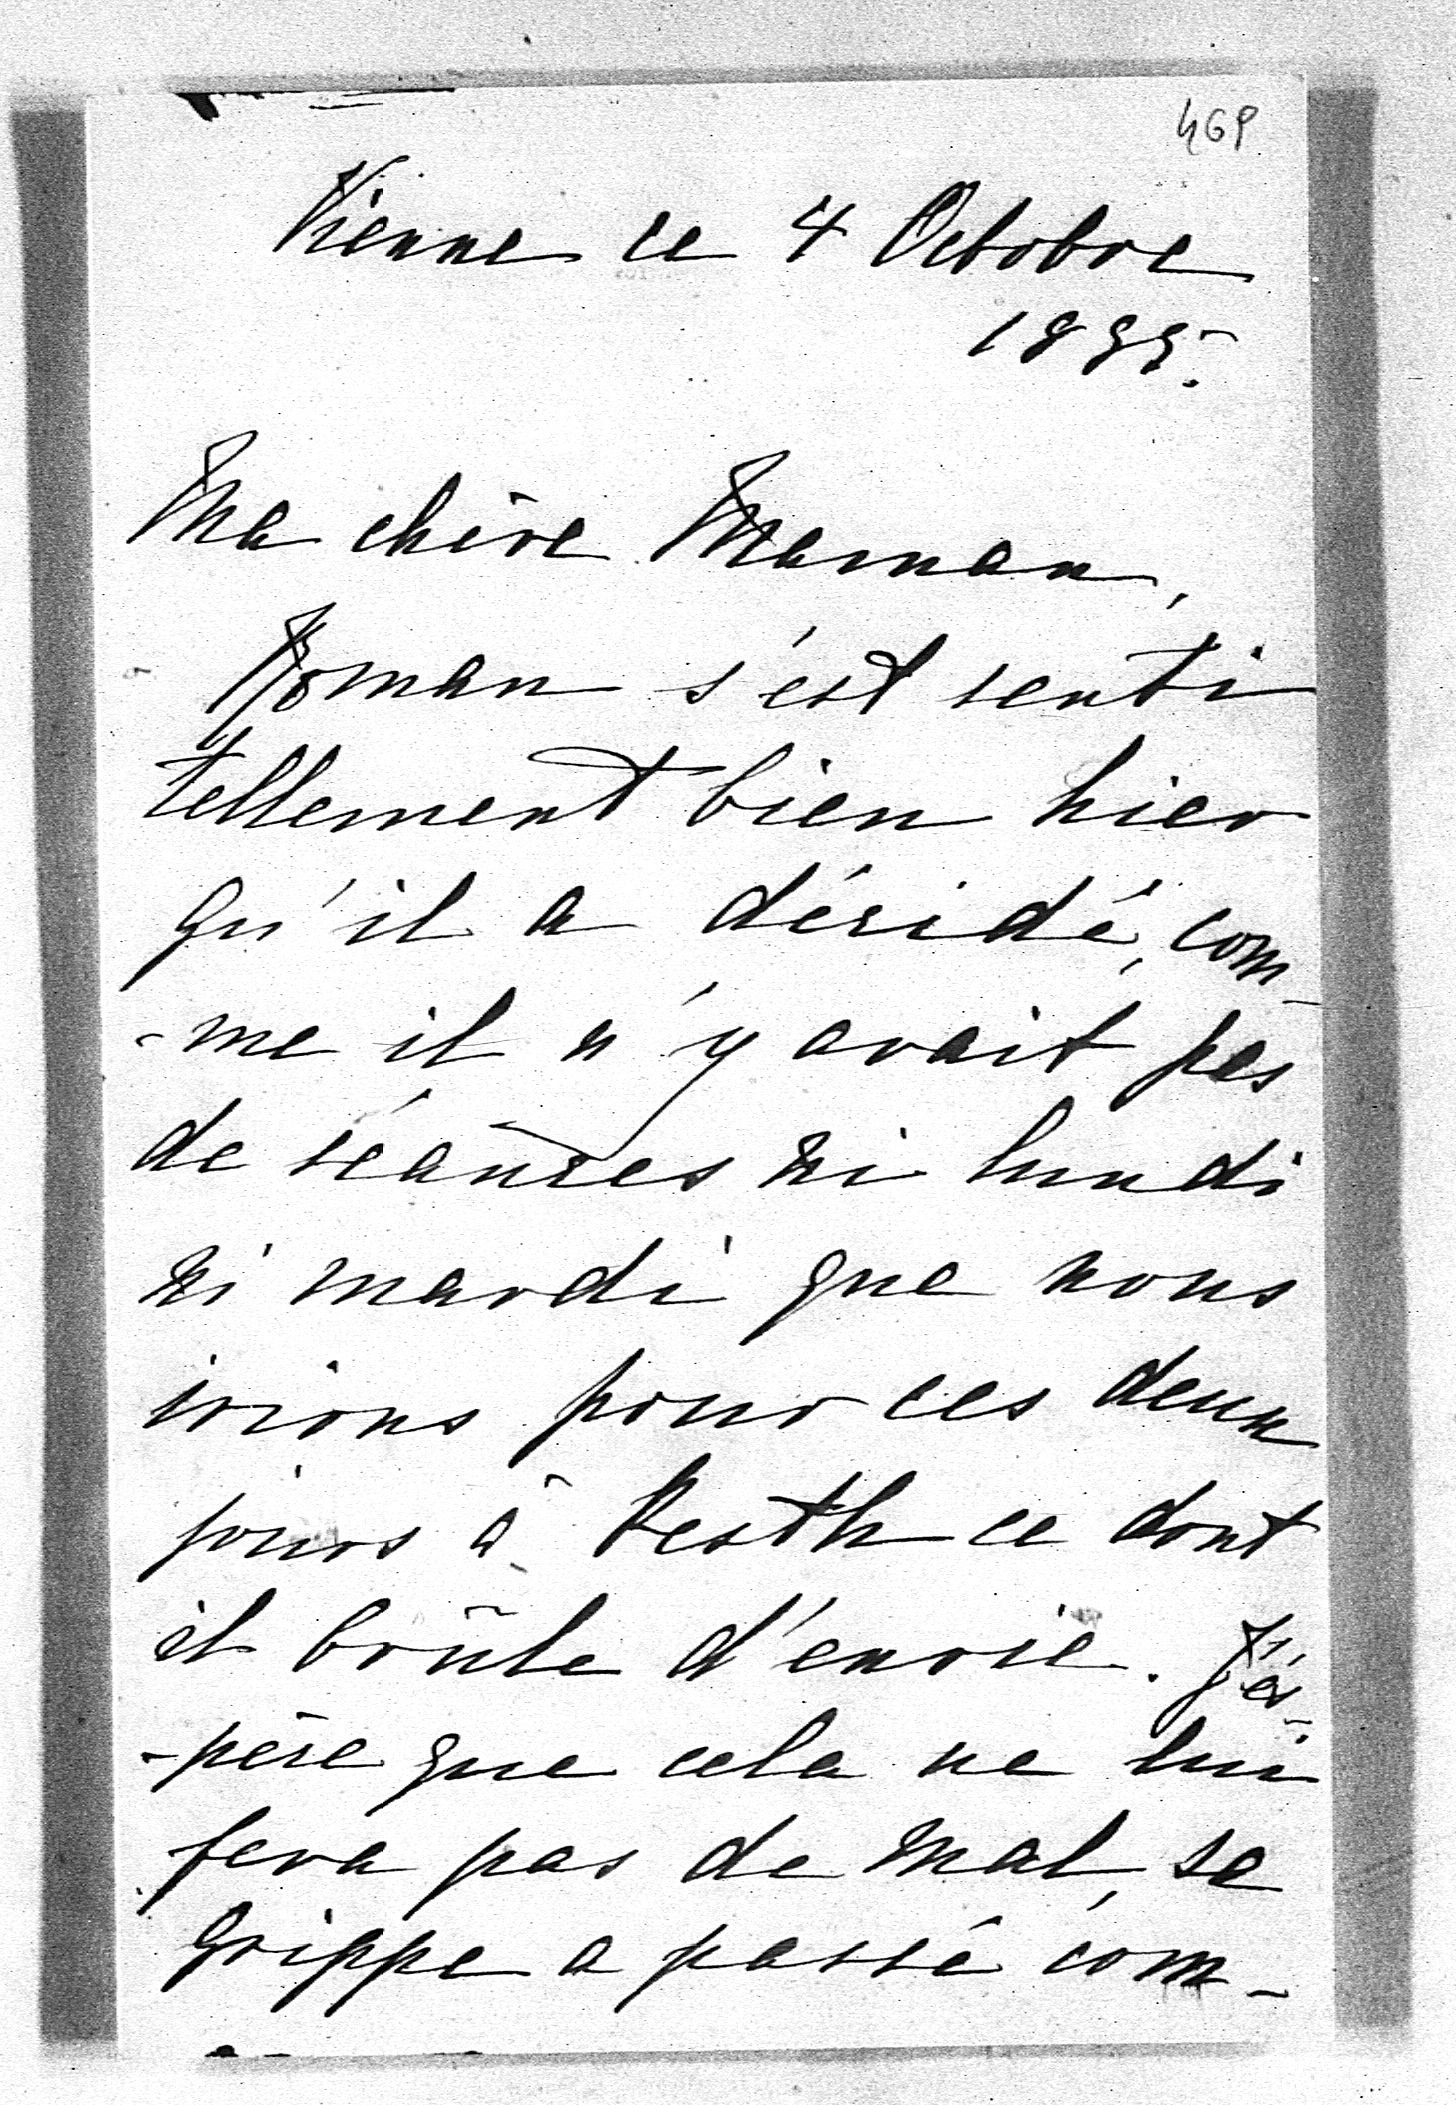 469
Vienne ce 4 Octobre
1885.
Ma chère Maman,
Roman s'est senti
tellement bien hier
qu'il a décidé, com-
-me il n'y avait pas
de séances ni lundi
ni mardi que nous
irions pour ces deux
jours à Pesth ce dont
il brûle d'envie. J'és-
-père que cela ne lui
fera pas de mal, sa
grippe a passé com-